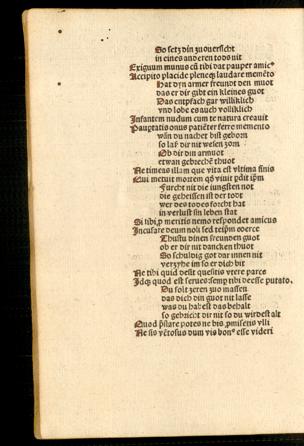 So setz din zuoversicht
in eines anderen tods nit
Exiguum munus cū tibi dat pauper amicꝰ
Accipito placide pleneqꝫ laudare memēto
Hat dyn armer freundt den muot
das er dir gibt ein kleines guot
Das entpfach gar williklich
vnd lobe es ouch volliklich
Infantem nudum cum te natura creauit
Paupertatis onus patiēter ferre memento
wan du nachet bist geborn
so laß dir nit wesen zorn
Ob dir din armuot
etwan gebrechē thuot
Ne timeas illam que vita est vltima finis
Qui metuit mortem qd viuit pdit ipm
Fürcht nit die iungsten not
die geheissen ist der todt
wer des todes forcht hat
in verlust sin leben stat
Si tibi p meritis nemo respondet amicus
Incusare deum noli sed teipm coerce
Thustu dinen freunden guot
ob er dir nit dancken thuot
So schuldig got dar innen nit
verzyhe im so er dich bit
Ne tibi quid desit quesitis vtere parce
Idqꝫ quod est serues semp tibi deesse putato.
Du solt zeren zuo massen
das dich din guot nit lasse
was du habest das behalt
so gebricht dir nit so du wirdest alt
Quod pstare potes ne bis pmiseris vlli
Ne sis vētosus dum vis bonꝰ esse videri